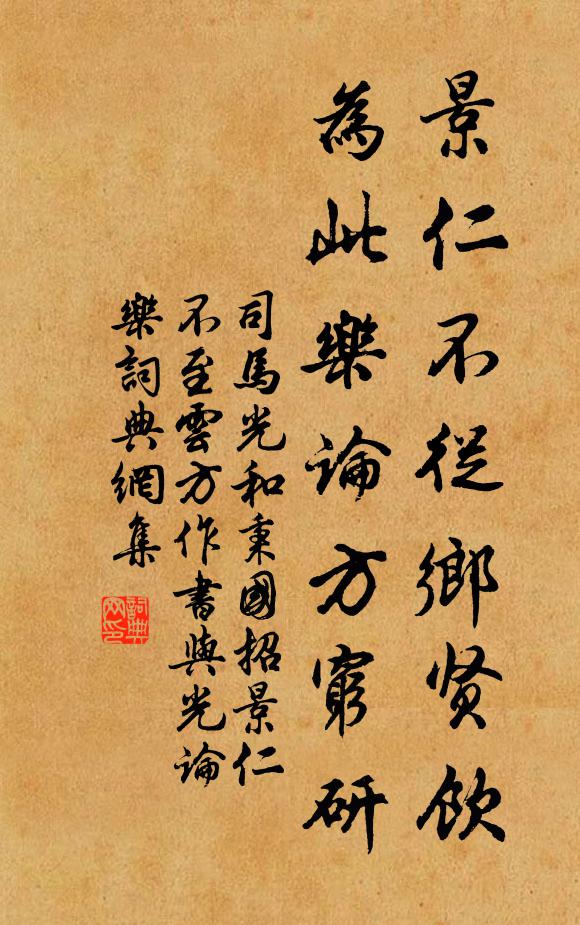 景仁不從鄉贤飲
為此樂論方窮研
司馬光和秉國招景仁
不至雲方作書與光論
樂詞典網集
詞典
网印